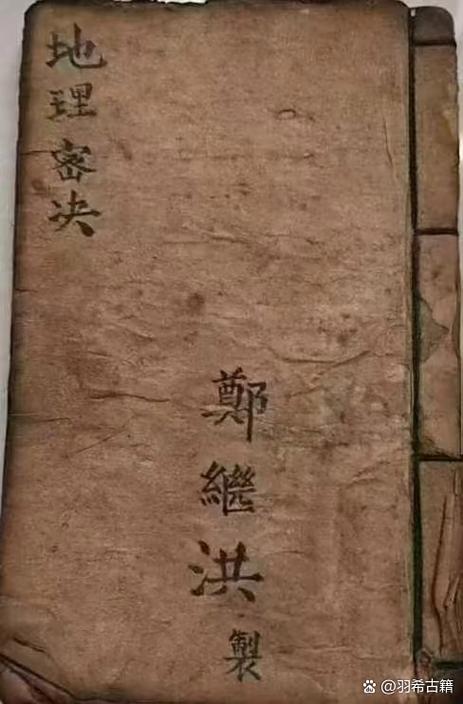 地理密决
鄭繼洪製
@羽希古籍